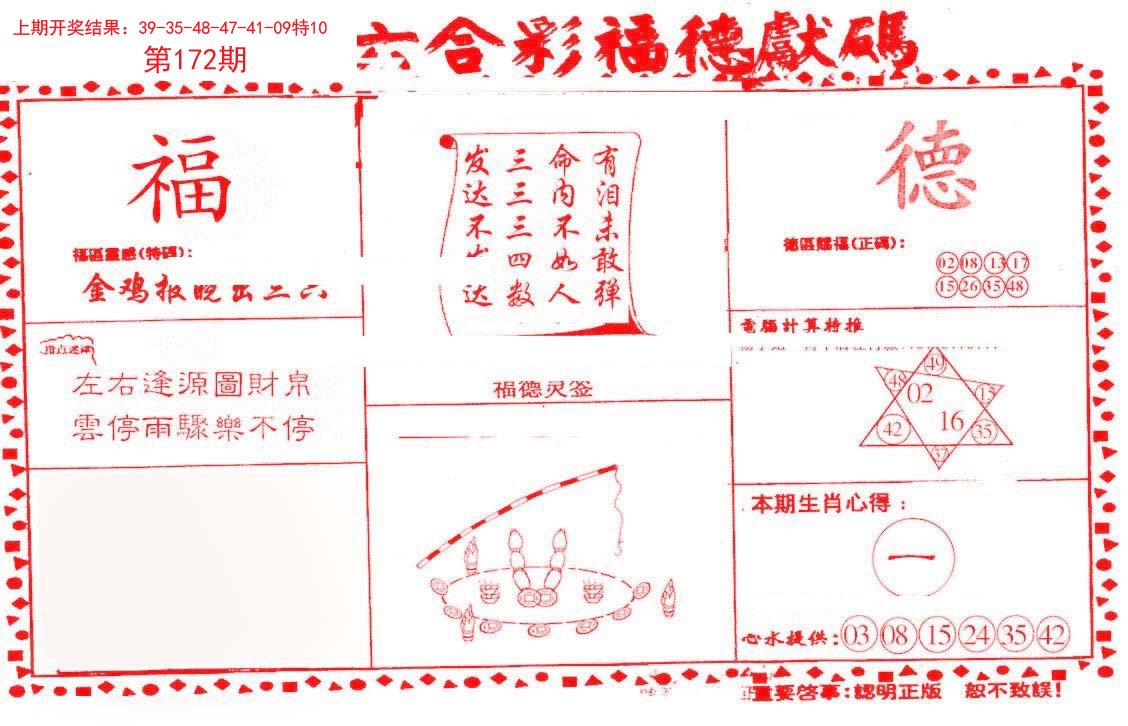 上期开奖结果：39-35-48-47-41-09特10
第172期
六合彩福德獻碼
福
福區靈感(特碼)：
金鸡报晓出二六
指点迷津
左右逢源圖財帛
雲停雨驟樂不停
有泪未敢弹
命内不如人
三三三四数
发达不 达
福德灵签
德
德區賜福(正碼)：
02 08 13 17
15 26 35 48
電腦計算特推
49
48 02 15
42 16 35
37
本期生肖心得：
一
心水提供：03 08 15 24 35 42
重要啓事：認明正版 恕不致誤！